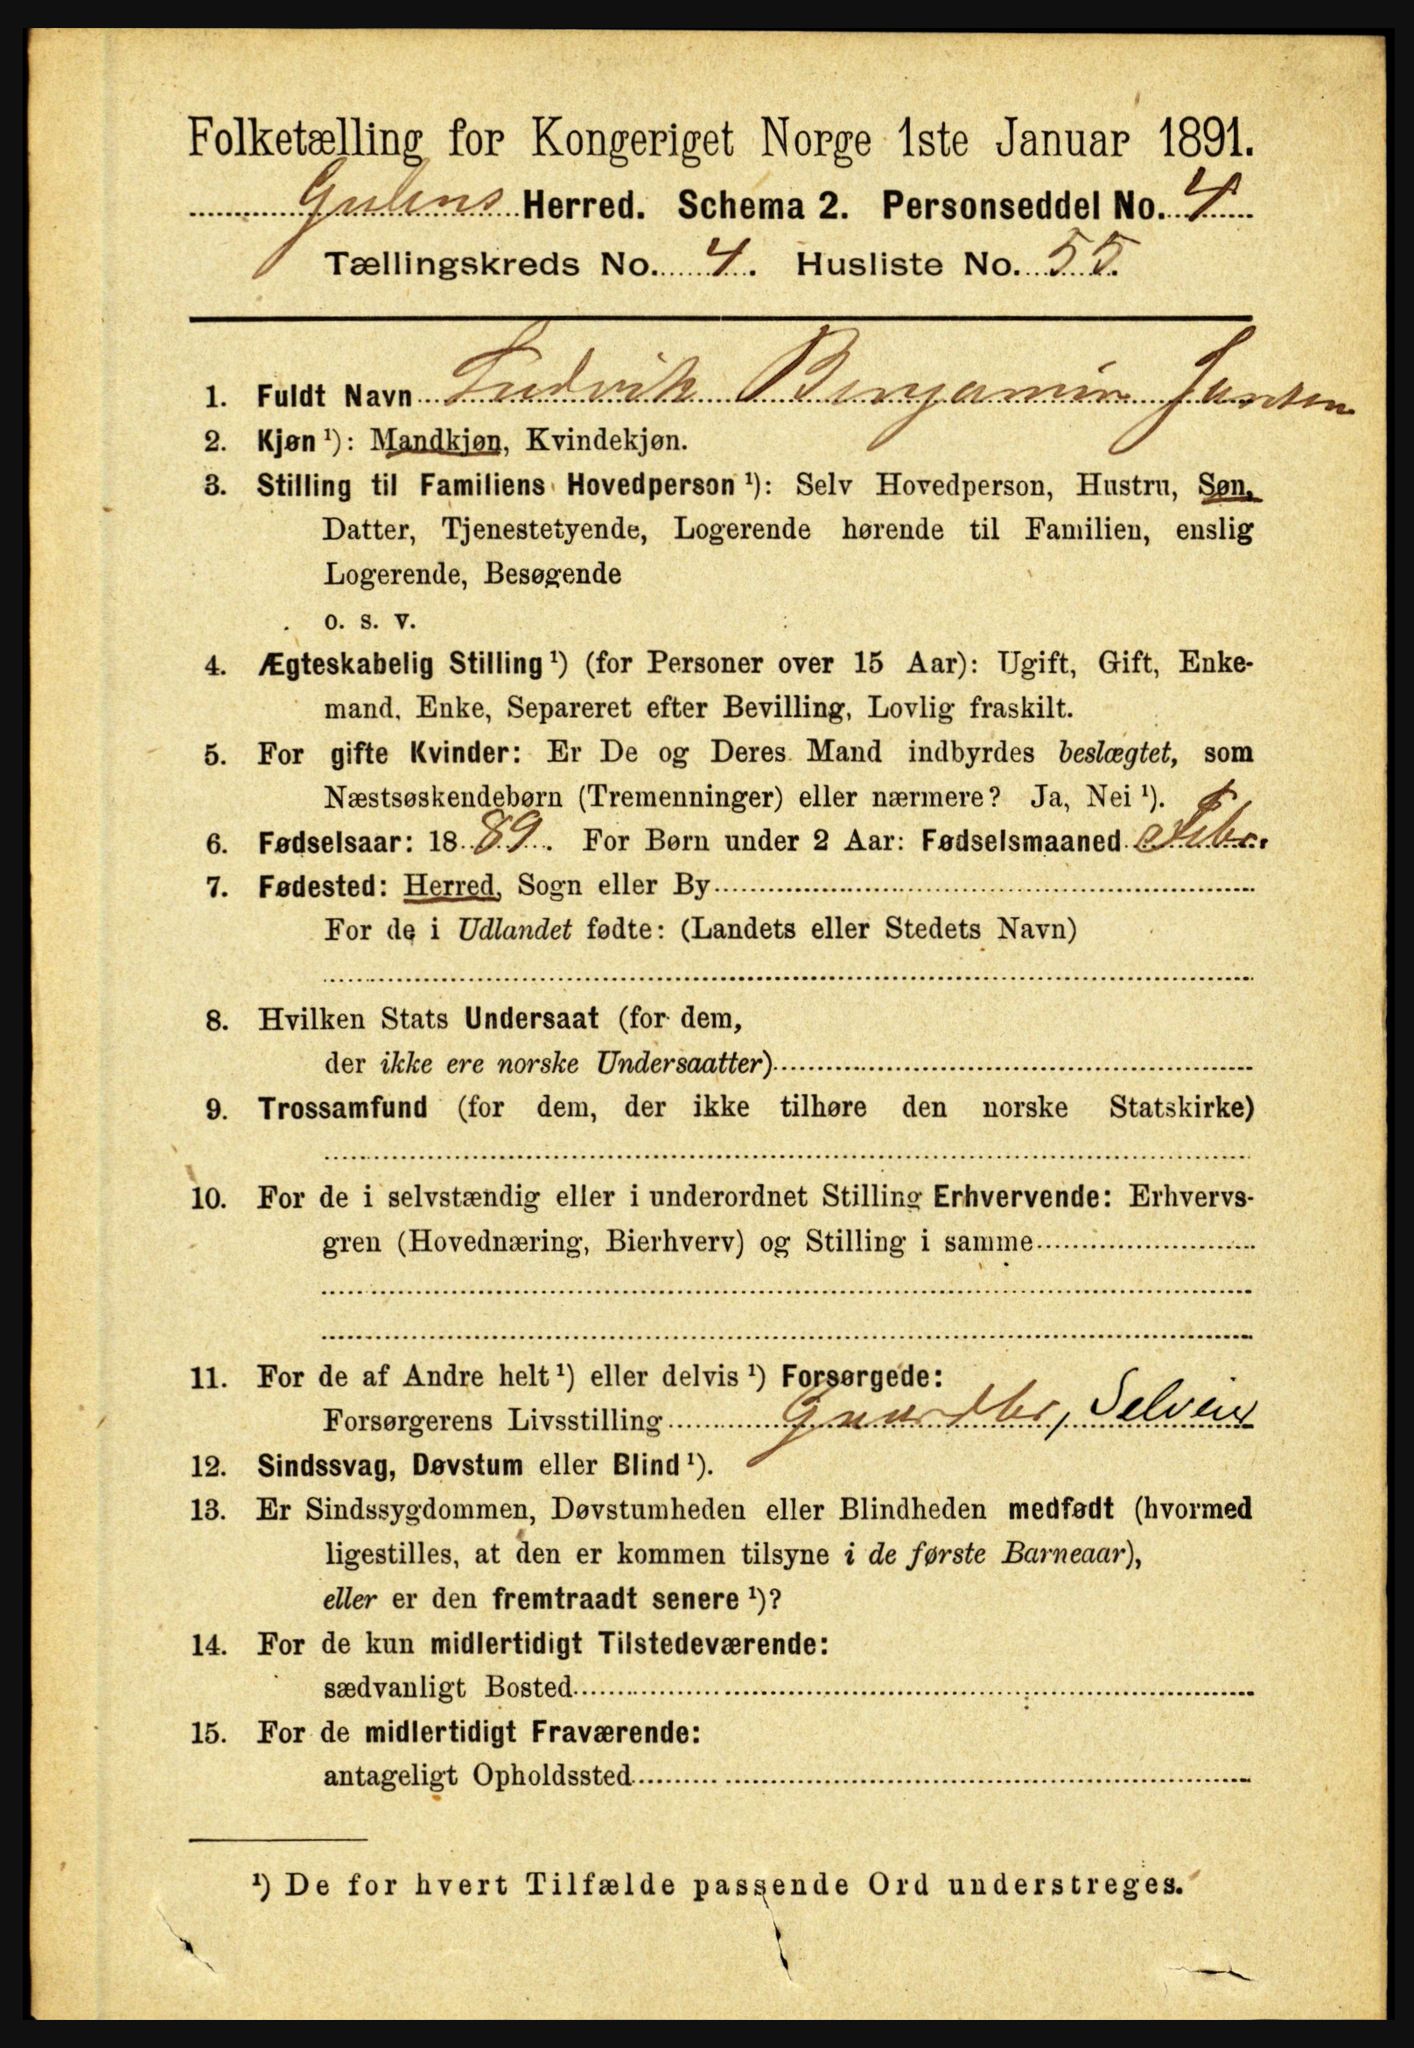 Folketælling for Kongeriget Norge 1ste Januar 1891.
Gulens Herred. Schema 2. Personseddel No. 4
Tællingskreds No. 4. Husliste No. 55.
1. Fuldt Navn Ludvik Benjamin Jansen
2. Kjøn ¹): Mandkjøn, Kvindekjøn.
3. Stilling til Familiens Hovedperson ¹): Selv Hovedperson, Hustru, Søn,
Datter, Tjenestetyende, Logerende hørende til Familien, enslig
Logerende, Besøgende
o. s. v.
4. Ægteskabelig Stilling ¹) (for Personer over 15 Aar): Ugift, Gift, Enke-
mand, Enke, Separeret efter Bevilling, Lovlig fraskilt.
5. For gifte Kvinder: Er De og Deres Mand indbyrdes beslægtet, som
Næstsøskendebørn (Tremenninger) eller nærmere? Ja, Nei ¹).
6. Fødselsaar: 1889. For Børn under 2 Aar: Fødselsmaaned Febr.
7. Fødested: Herred, Sogn eller By
For de i Udlandet fødte: (Landets eller Stedets Navn)
8. Hvilken Stats Undersaat (for dem,
der ikke ere norske Undersaatter)
9. Trossamfund (for dem, der ikke tilhøre den norske Statskirke)
10. For de i selvstændig eller i underordnet Stilling Erhvervende: Erhvervs-
gren (Hovednæring, Bierhverv) og Stilling i samme
11. For de af Andre helt ¹) eller delvis ¹) Forsørgede:
Forsørgerens Livsstilling Gaardbr, Selveier
12. Sindssvag, Døvstum eller Blind ¹).
13. Er Sindssygdommen, Døvstumheden eller Blindheden medfødt (hvormed
ligestilles, at den er kommen tilsyne i de første Barneaar),
eller er den fremtraadt senere ¹)?
14. For de kun midlertidigt Tilstedeværende:
sædvanligt Bosted
15. For de midlertidigt Fraværende:
antageligt Opholdssted
¹) De for hvert Tilfælde passende Ord understreges.